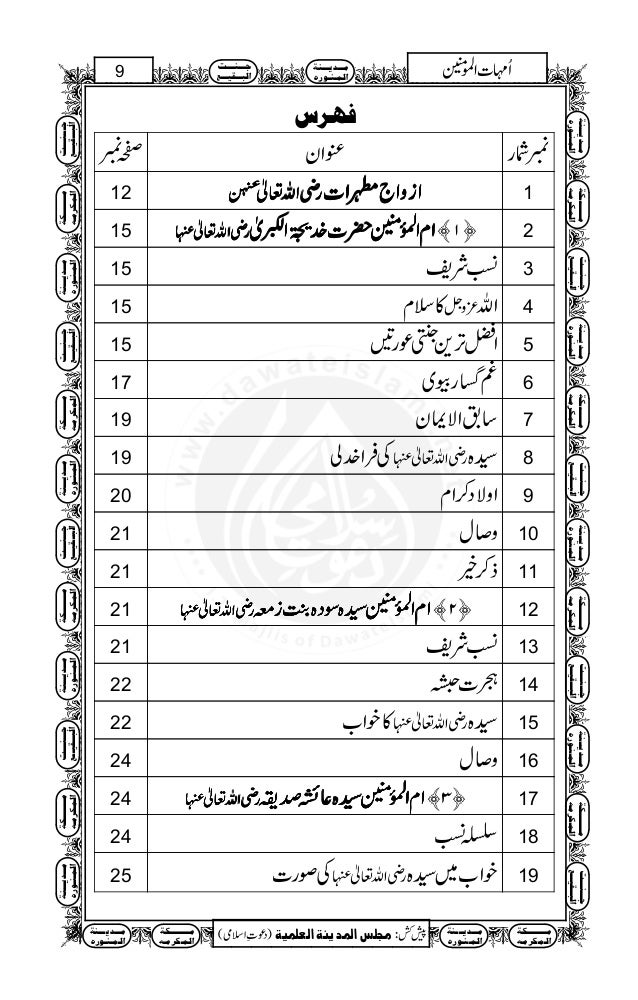 اُمہات المؤمنین
9
فہرس
نمبر شمار عنوان صفحہ نمبر
1 ازواج مطہرات رضی اللہ تعالیٰ عنہن 12
2 ﴿۱﴾ ام المؤمنین حضرت خدیجۃ الکبریٰ رضی اللہ تعالیٰ عنہا 15
3 نسب شریف 15
4 اللہ عزوجل کا سلام 15
5 افضل ترین جنتی عورتیں 15
6 غم گسار بیوی 17
7 سابق الایمان 19
8 سیدہ رضی اللہ تعالیٰ عنہا کی فراخدلی 19
9 اولاد کرام 20
10 وصال 21
11 ذکر خیر 21
12 ﴿۲﴾ ام المؤمنین سیدہ سودہ بنت زمعہ رضی اللہ تعالیٰ عنہا 21
13 نسب شریف 21
14 ہجرت حبشہ 22
15 سیدہ رضی اللہ تعالیٰ عنہا کا خواب 22
16 وصال 24
17 ﴿۳﴾ ام المؤمنین سیدہ عائشہ صدیقہ رضی اللہ تعالیٰ عنہا 24
18 سلسلہ نسب 24
19 خواب میں سیدہ رضی اللہ تعالیٰ عنہا کی صورت 25
پیش کش: مجلس المدینة العلمیة (دعوتِ اسلامی)